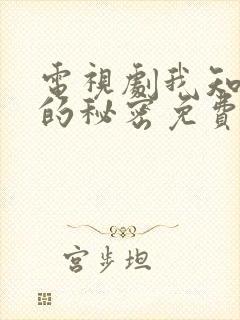 電視劇我知
的秘密免費
宮步坦